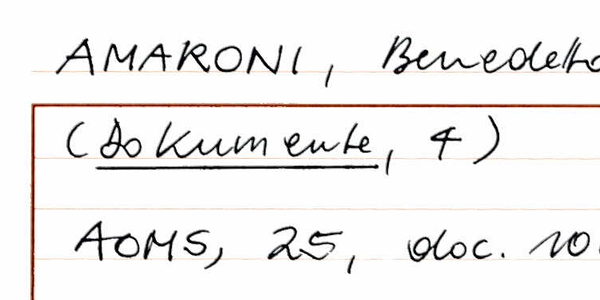 AMARONI, Benedetto
(Dokumente, 4)
AOMS, 25, doc. 10